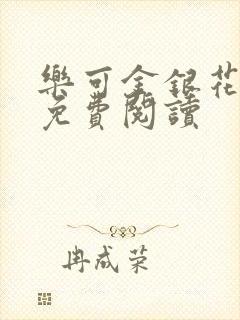 樂可金銀花
免費閱讀
冉成荣